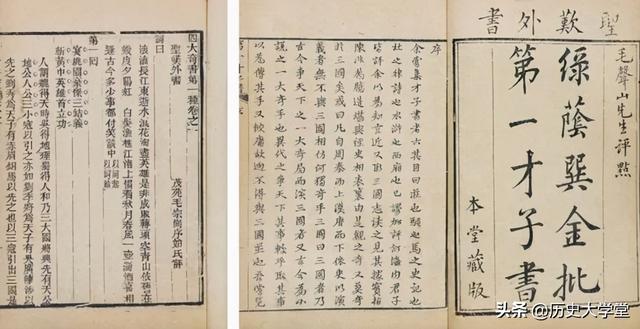 聖歎外書
毛聲山先生評點
綠蔭巽金批
第一才子書
本堂藏版
序
余嘗集才子書者六其目曰莊也騷也馬之史記也
杜之律詩也水滸也西廂也已謬加評訂海內君子
皆許余以為知言近又取三國志讀之見其據實指
陳非屬臆造堪與經史相表裏由是觀之奇又莫奇
於三國矣或曰凡自周秦而上漢唐而下依史以演
義者無不與三國相仿何獨奇乎三國曰三國者乃
古今爭天下之一大奇局而演三國者又古今為小
說之一大奇手也異代之爭天下其事較平取其事
以為傳其手又較庸故迥不得與三國並也吾嘗覽
四大奇書第一種卷之一
聖嘆外書 茂苑毛宗崗序始氏評
詞曰
滾滾長江東逝水浪花淘盡英雄是非成敗轉頭空青山依舊在
幾度夕陽紅 白髮漁樵江渚上慣看秋月春風一壺濁酒喜相
逢古今多少事都付笑談中
第一回
宴桃園豪傑三結義
斬黃巾英雄首立功
人謂魏得天時吳得地理蜀得人和乃三大國將興先有天公
地公人公三小寇以引之亦如劉季將為天子有吳廣陳涉以
先之劉秀將為天子有赤眉銅馬以先之也以三寇引出三國是
头条 @历史大学堂